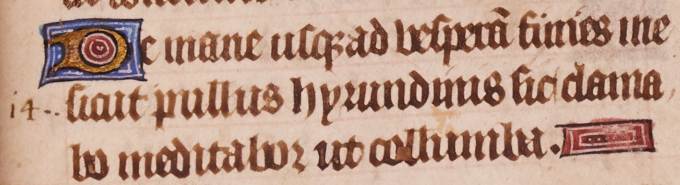 De mane usqꝫ ad vesperā finies me
14.. sicut pullus hyrundinis sic clama
bo meditabor ut collumba.